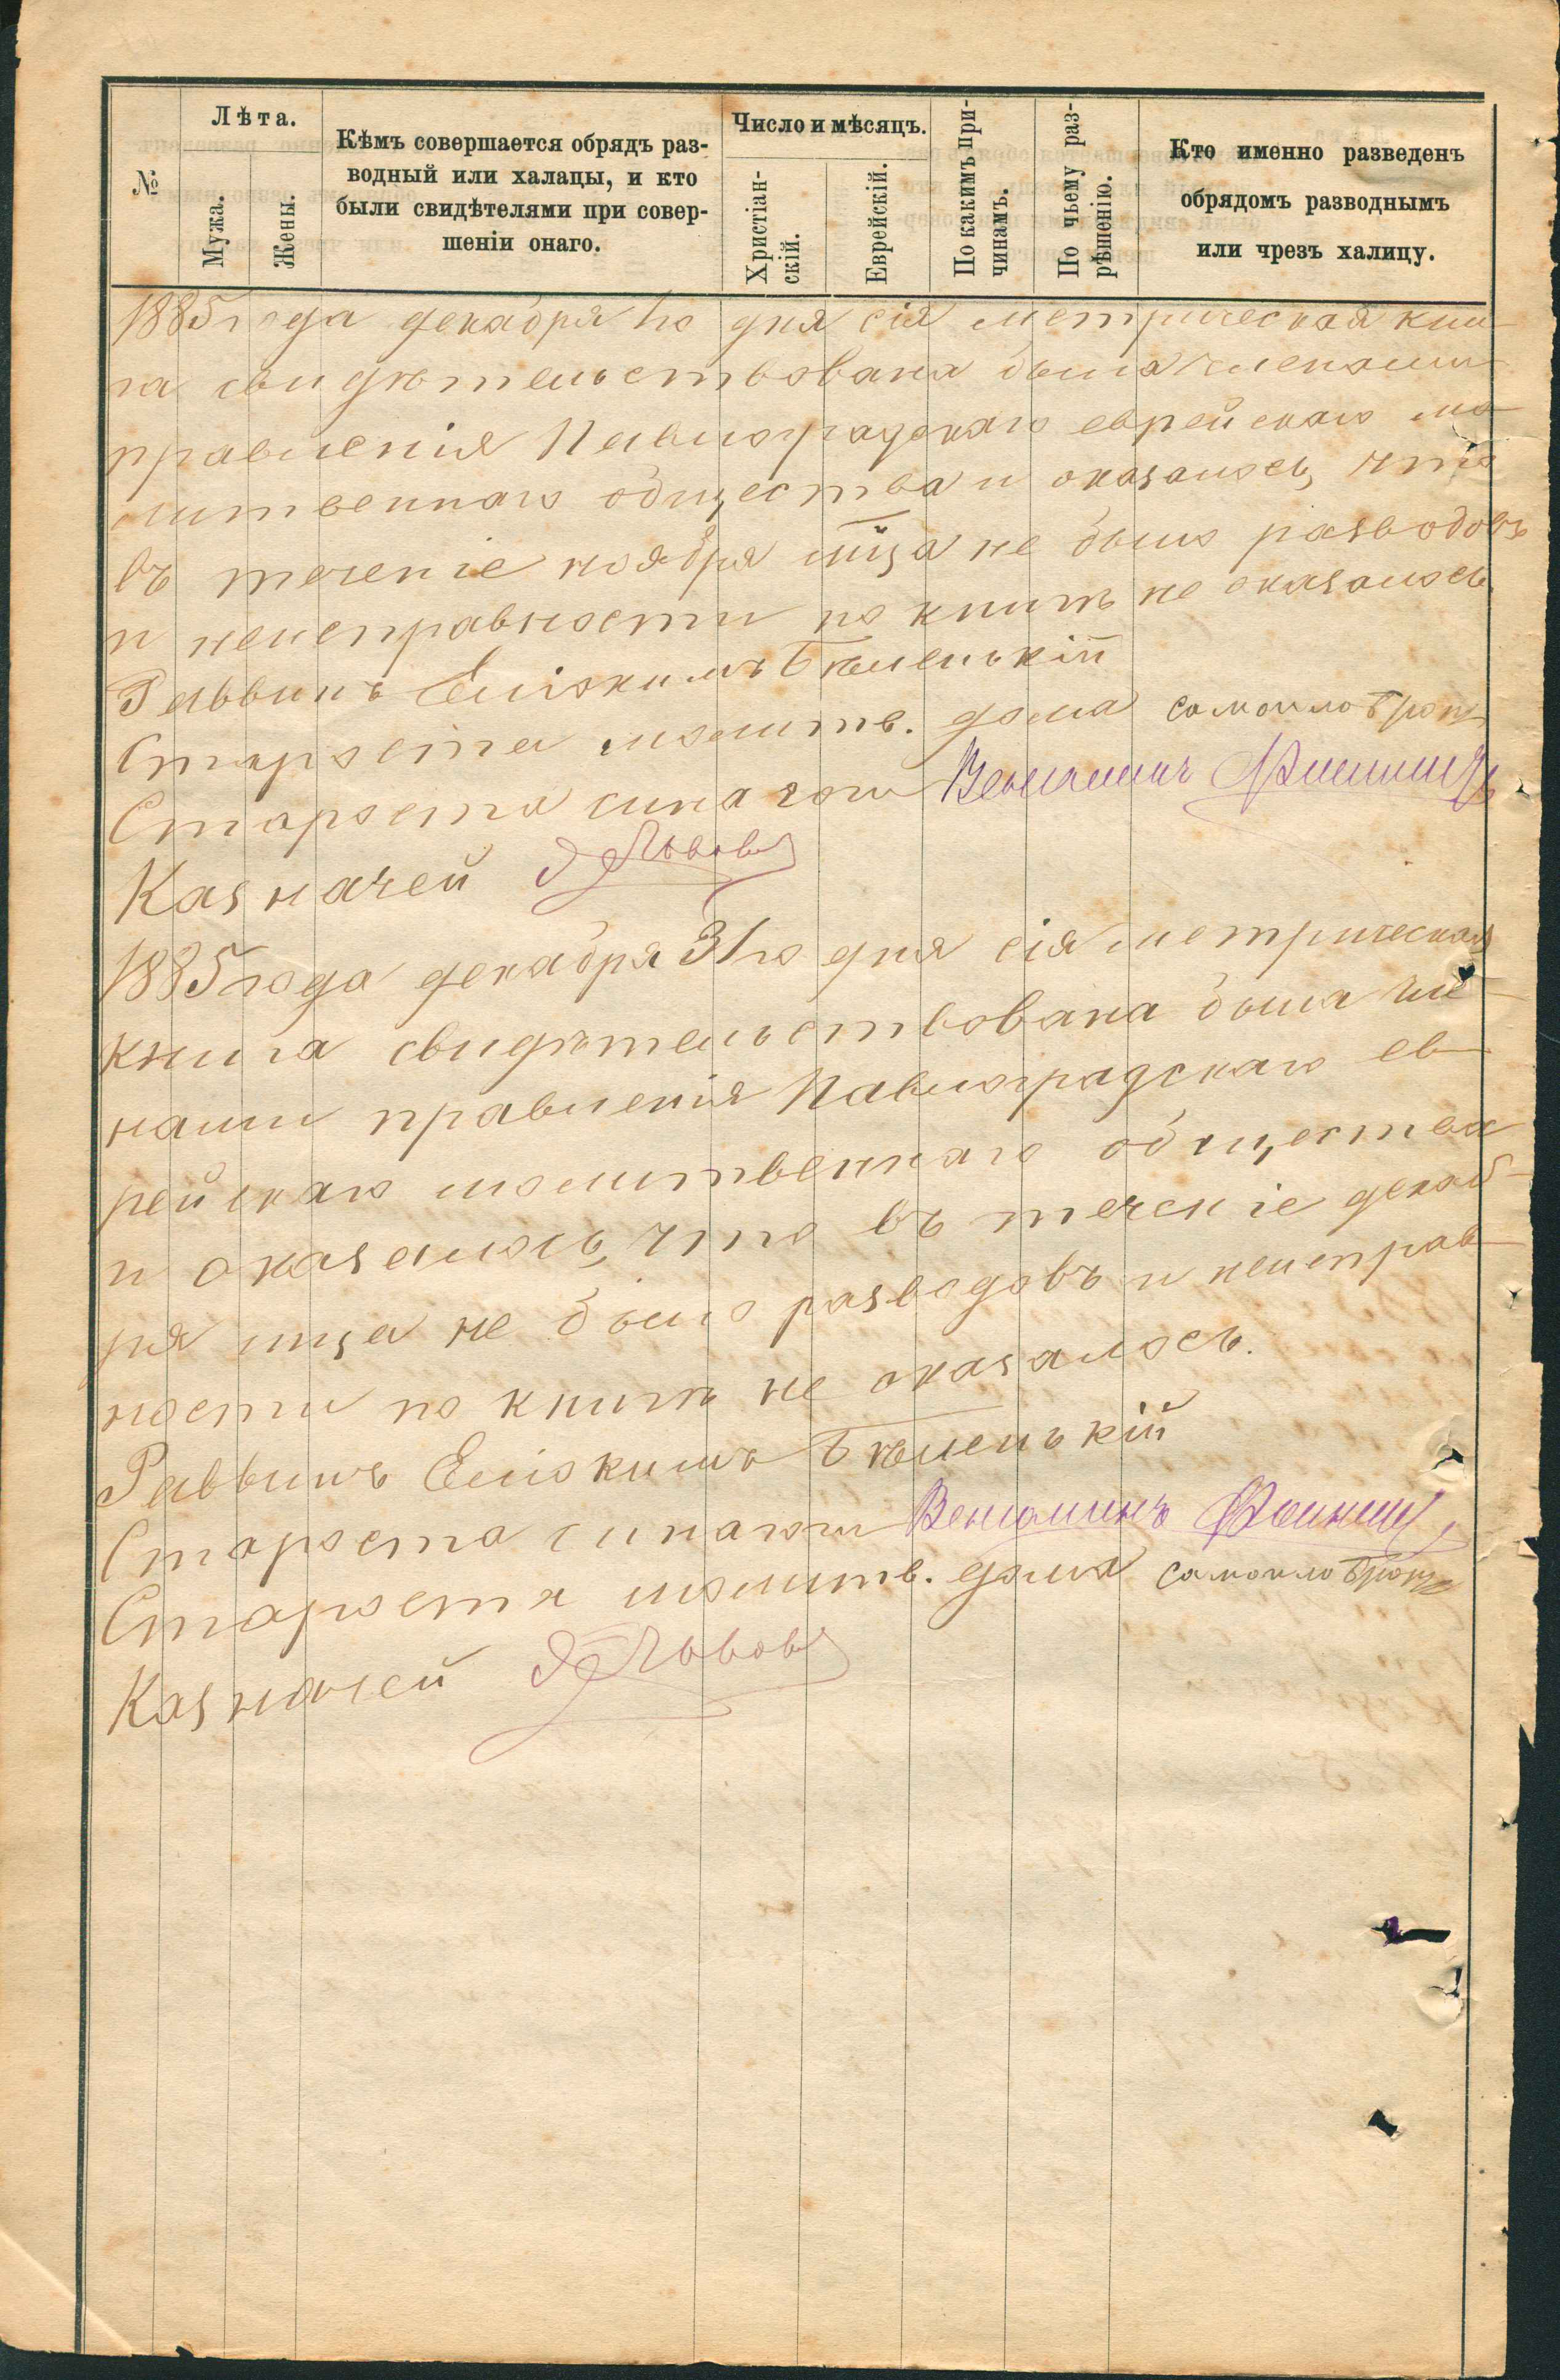 №
Лѣта.
Мужа.
Жены.
Кѣмъ совершается обрядъ раз-
водный или халацы, и кто
были свидѣтелями при совер-
шеніи онаго.
Число и мѣсяцъ.
Христіан-
скій.
Еврейскій.
По какимъ при-
чинамъ.
По чьему раз-
рѣшенію.
Кто именно разведенъ
обрядомъ разводнымъ
или чрезъ халицу.
1885 года декабря 1го дня сія метрическая кни-
га свидѣтельствована была членами
правленія Павлоградскаго еврейскаго мо-
литвеннаго общества и оказалось, что
въ теченіе ноября мѣца не было разводовъ
и неисправности по книгѣ не оказалось
Раввинъ Еліокимъ Бѣленькій
Староста молитв. дома
Староста синагоги Веньяминъ
Казначей Львовъ
1885 года декабря 31го дня сія метрическая
книга свидѣтельствована была чле-
нами правленія Павлоградскаго ев-
рейскаго молитвеннаго общества
и оказалось, что въ теченіе декаб-
ря мца не было разводовъ и неисправ-
ности по книгѣ не оказалось.
Раввинъ Еліокимъ Бѣленькій
Староста синагоги Веніаминъ
Староста молитв. дома
Казначей Львовъ